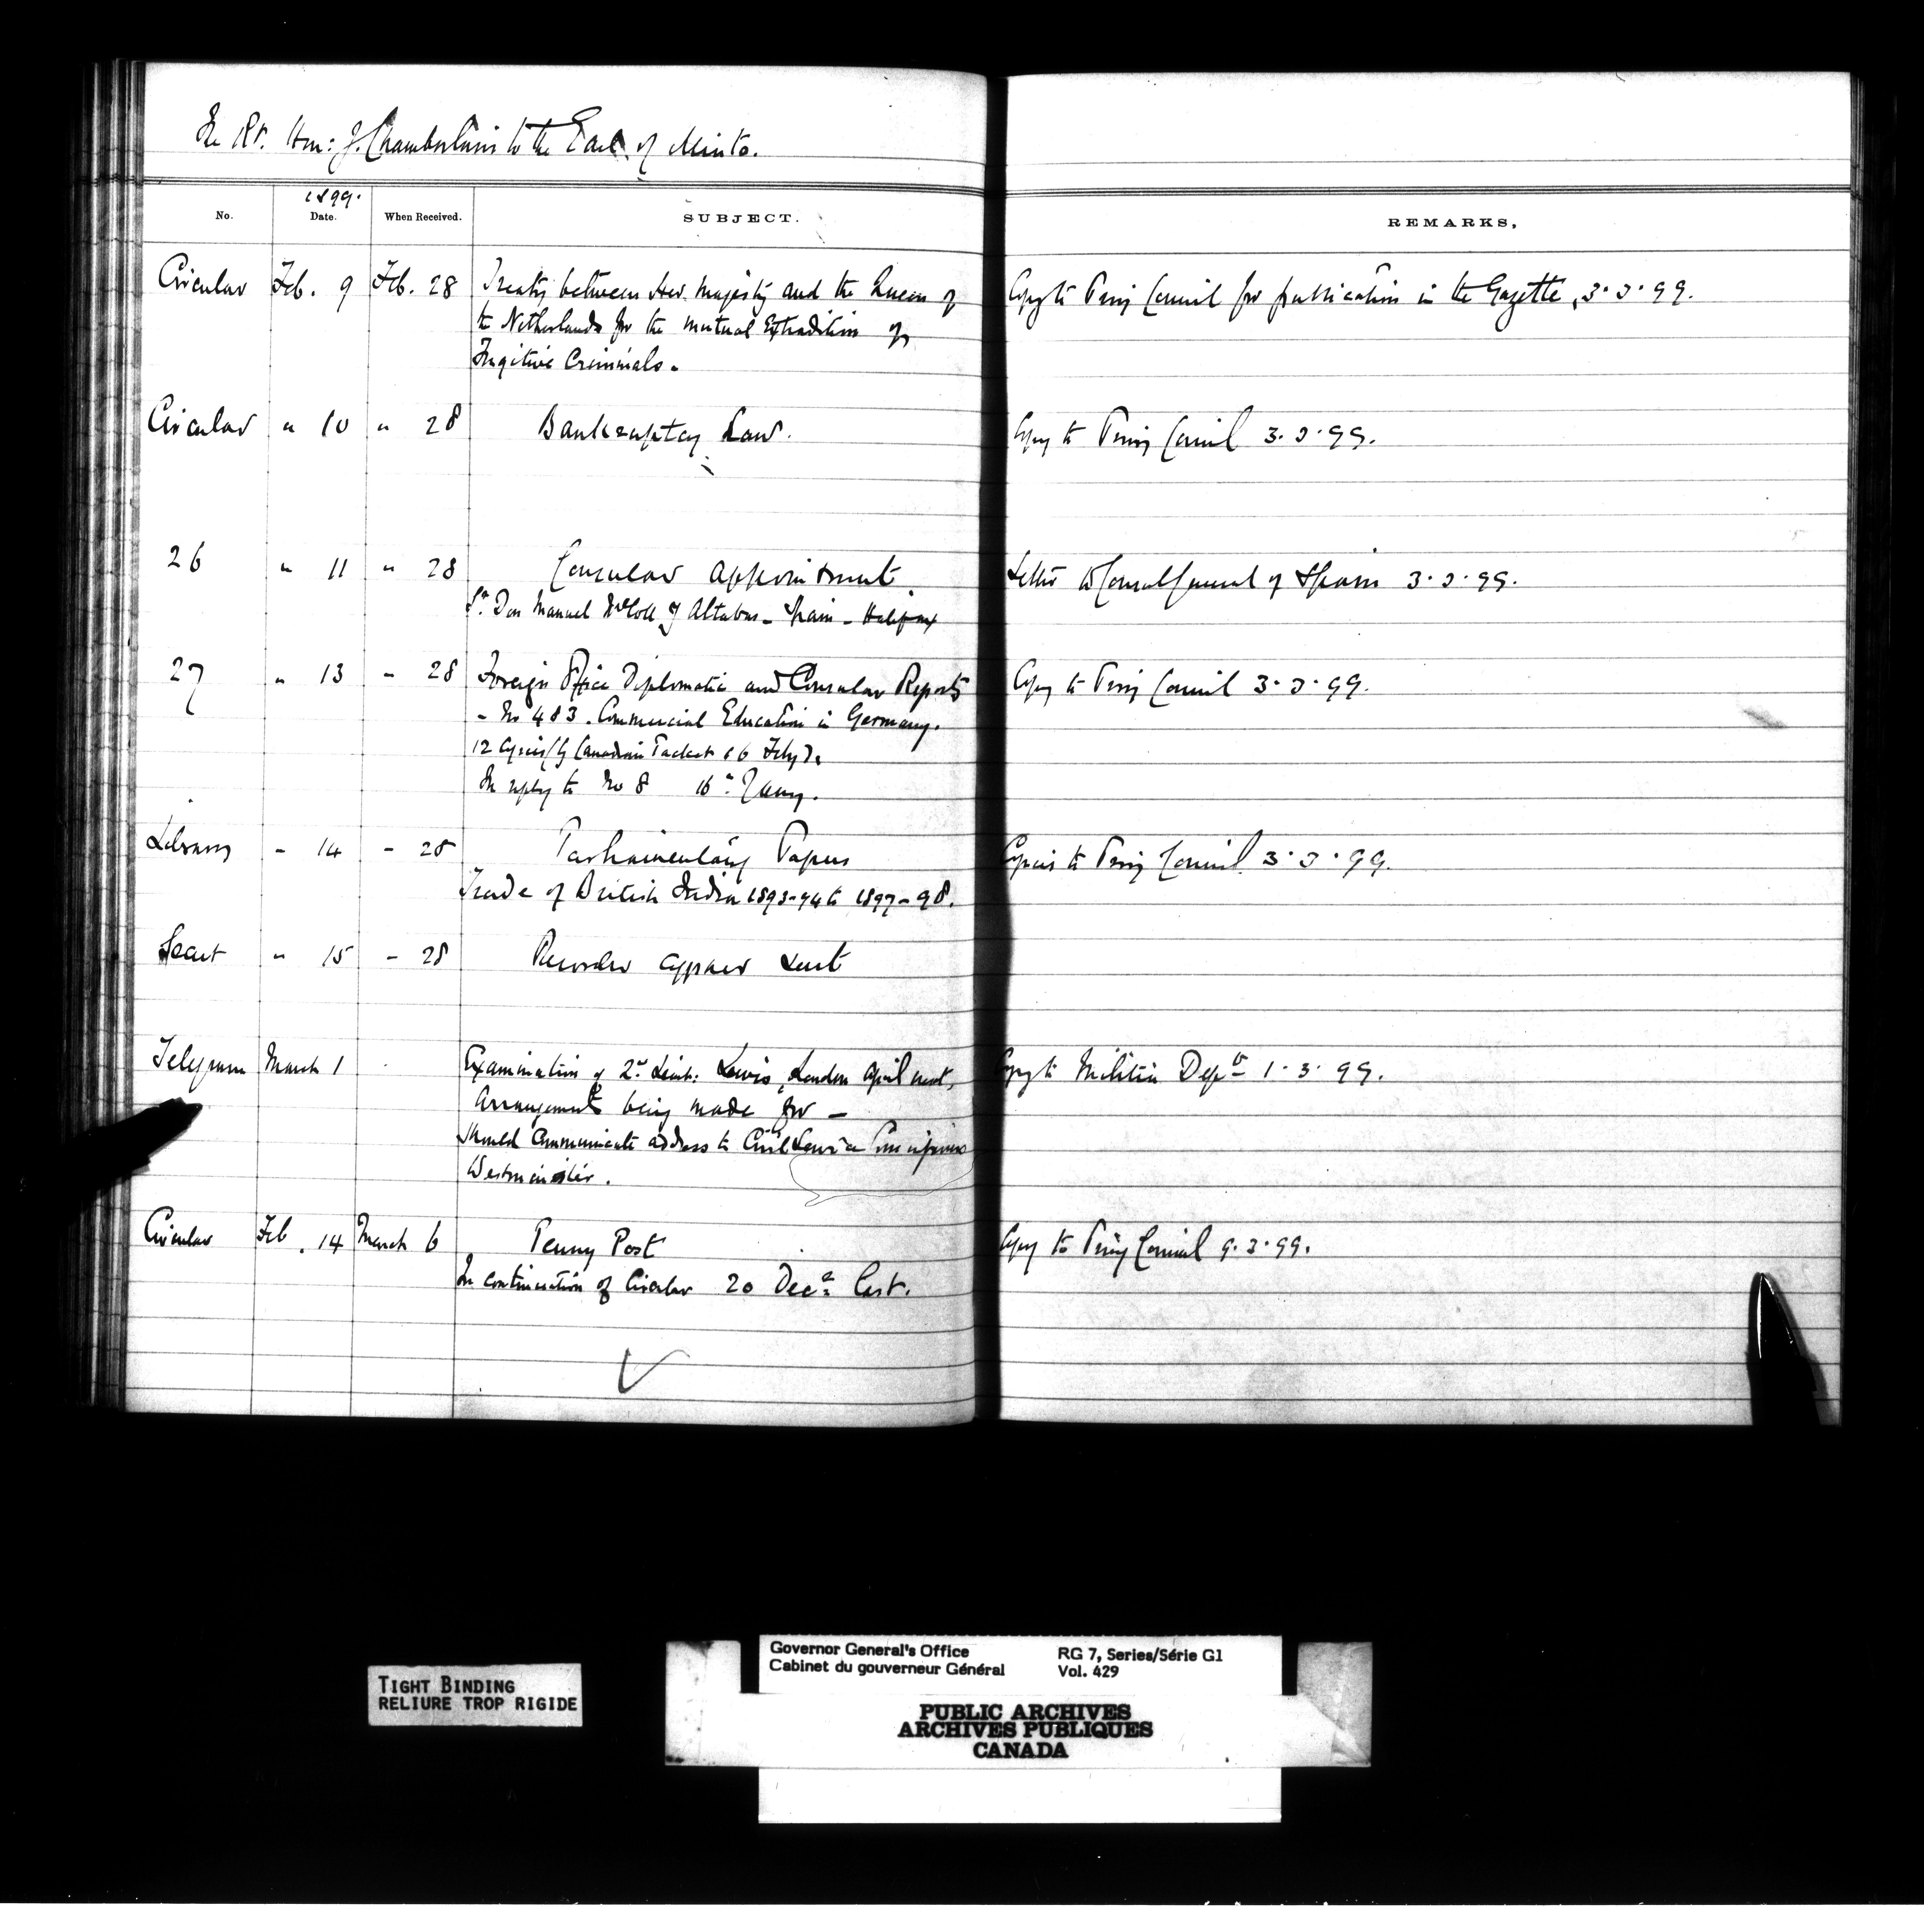 The Rt. Hon: J. Chamberlain to the Earl of Minto.
1899.
No. Date. When Received. SUBJECT. REMARKS,
Circular Feb. 9 Feb. 28 Treaty between Her Majesty and the Queen of Copy to Privy Council for publication in the Gazette, 3.3.99.
the Netherlands for the mutual Extradition of
Fugitive Criminals.
Circular " 10 " 28 Bankruptcy Law. Copy to Privy Council 3.3.99.
26 " 11 " 28 Consular Appointment Letter to Consul General of Spain 3.3.99.
Sr. Don Manuel y Altabas - Spain - Halifax
27 " 13 " 28 Foreign Office Diplomatic and Consular Reports Copy to Privy Council 3.3.99.
- No 483. Commercial Education in Germany.
12 Copies (by Canadian Packet 16 Feby).
In reply to No 8 16th Jany.
Library " 14 " 28 Parliamentary Papers Copies to Privy Council 3.3.99.
Trade of British India 1893-94 to 1897-98.
Secret " 15 " 28 Recorder cypher sent
Telegram March 1 Examination of 2nd Lieut: Lewis, London April next, Copy to Militia Dept 1.3.99.
Arrangements being made for -
Should Communicate address to Civil Service Commissioners
Westminster.
Circular Feb. 14 March 6 Penny Post Copy to Privy Council 9.3.99.
In continuation of Circular 20 Decr. last.
TIGHT BINDING
RELIURE TROP RIGIDE
Governor General's Office RG 7, Series/Série G1
Cabinet du gouverneur Général Vol. 429
PUBLIC ARCHIVES
ARCHIVES PUBLIQUES
CANADA